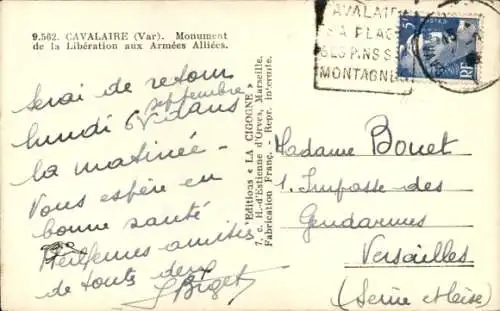 9.562. CAVALAIRE (Var). Monument
de la Libération aux Armées Alliées.
CAVALAIRE
SA PLAGE
SES PINS SES
MONTAGNES
5F
POSTES
RF
Serai de retour
lundi 6 septembre dans
la matinée —
Vous espère en
bonne santé
Meilleures amitiés
de touts deux
Editions « LA CIGOGNE »
7, c. H.-d'Estienne d'Orves, Marseille.
Fabrication Franç. - Repr. interdite.
Madame Bouet
1. Impasse des
Gendarmes
Versailles
(Seine et Oise)